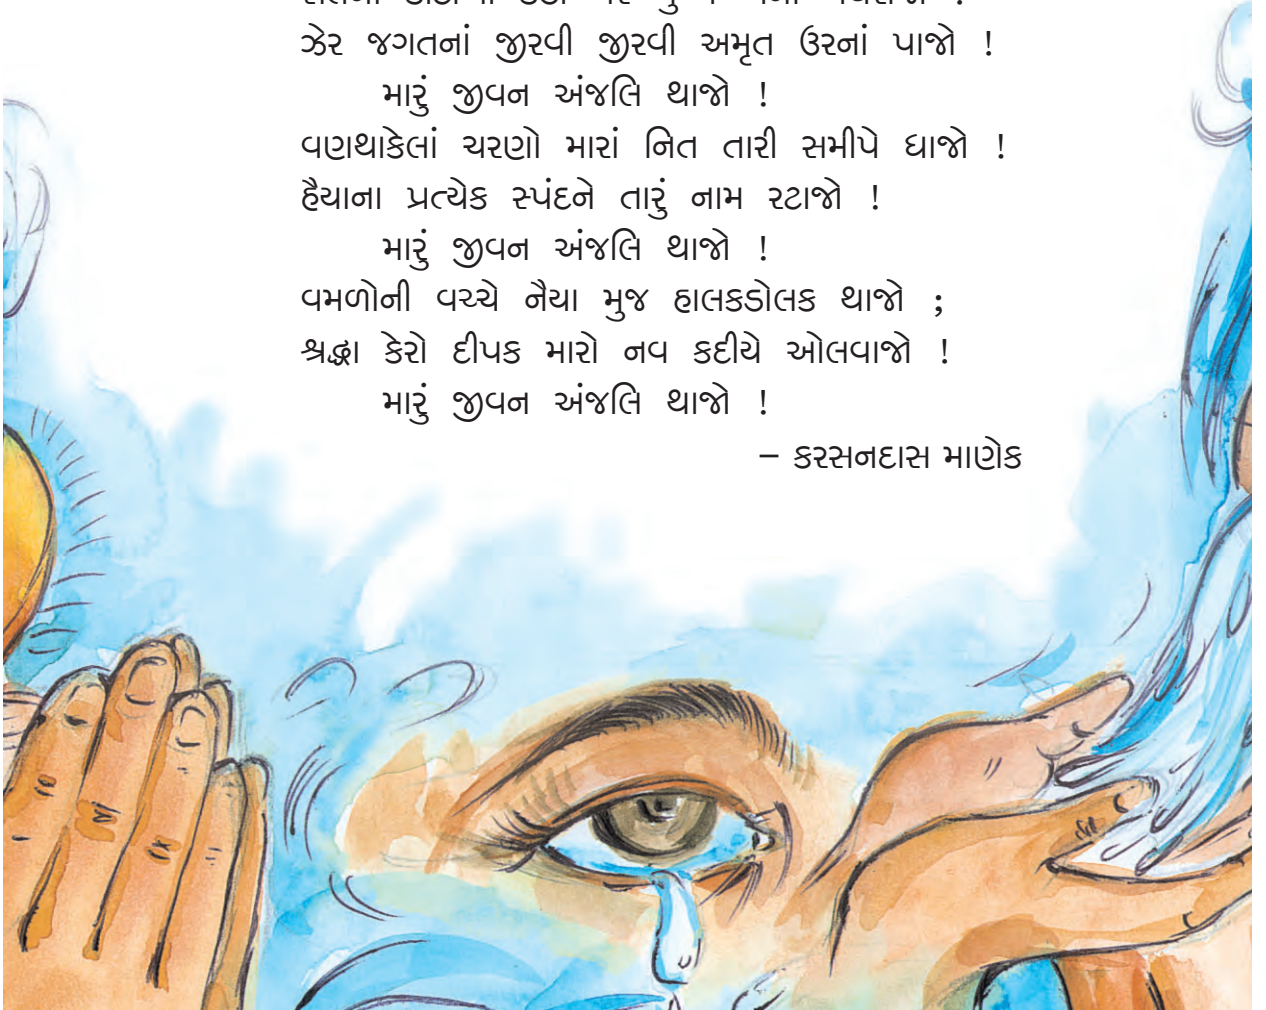 ઝેર જગતનાં જીરવી જીરવી અમૃત ઉરનાં પાજો !
મારું જીવન અંજલિ થાજો !
વણથાકેલાં ચરણો મારાં નિત તારી સમીપે ધાજો !
હૈયાના પ્રત્યેક સ્પંદને તારું નામ રટાજો !
મારું જીવન અંજલિ થાજો !
વમળોની વચ્ચે નૈયા મુજ હાલકડોલક થાજો ;
શ્રદ્ધા કેરો દીપક મારો નવ કદીયે ઓલવાજો !
મારું જીવન અંજલિ થાજો !
– કરસનદાસ માણેક